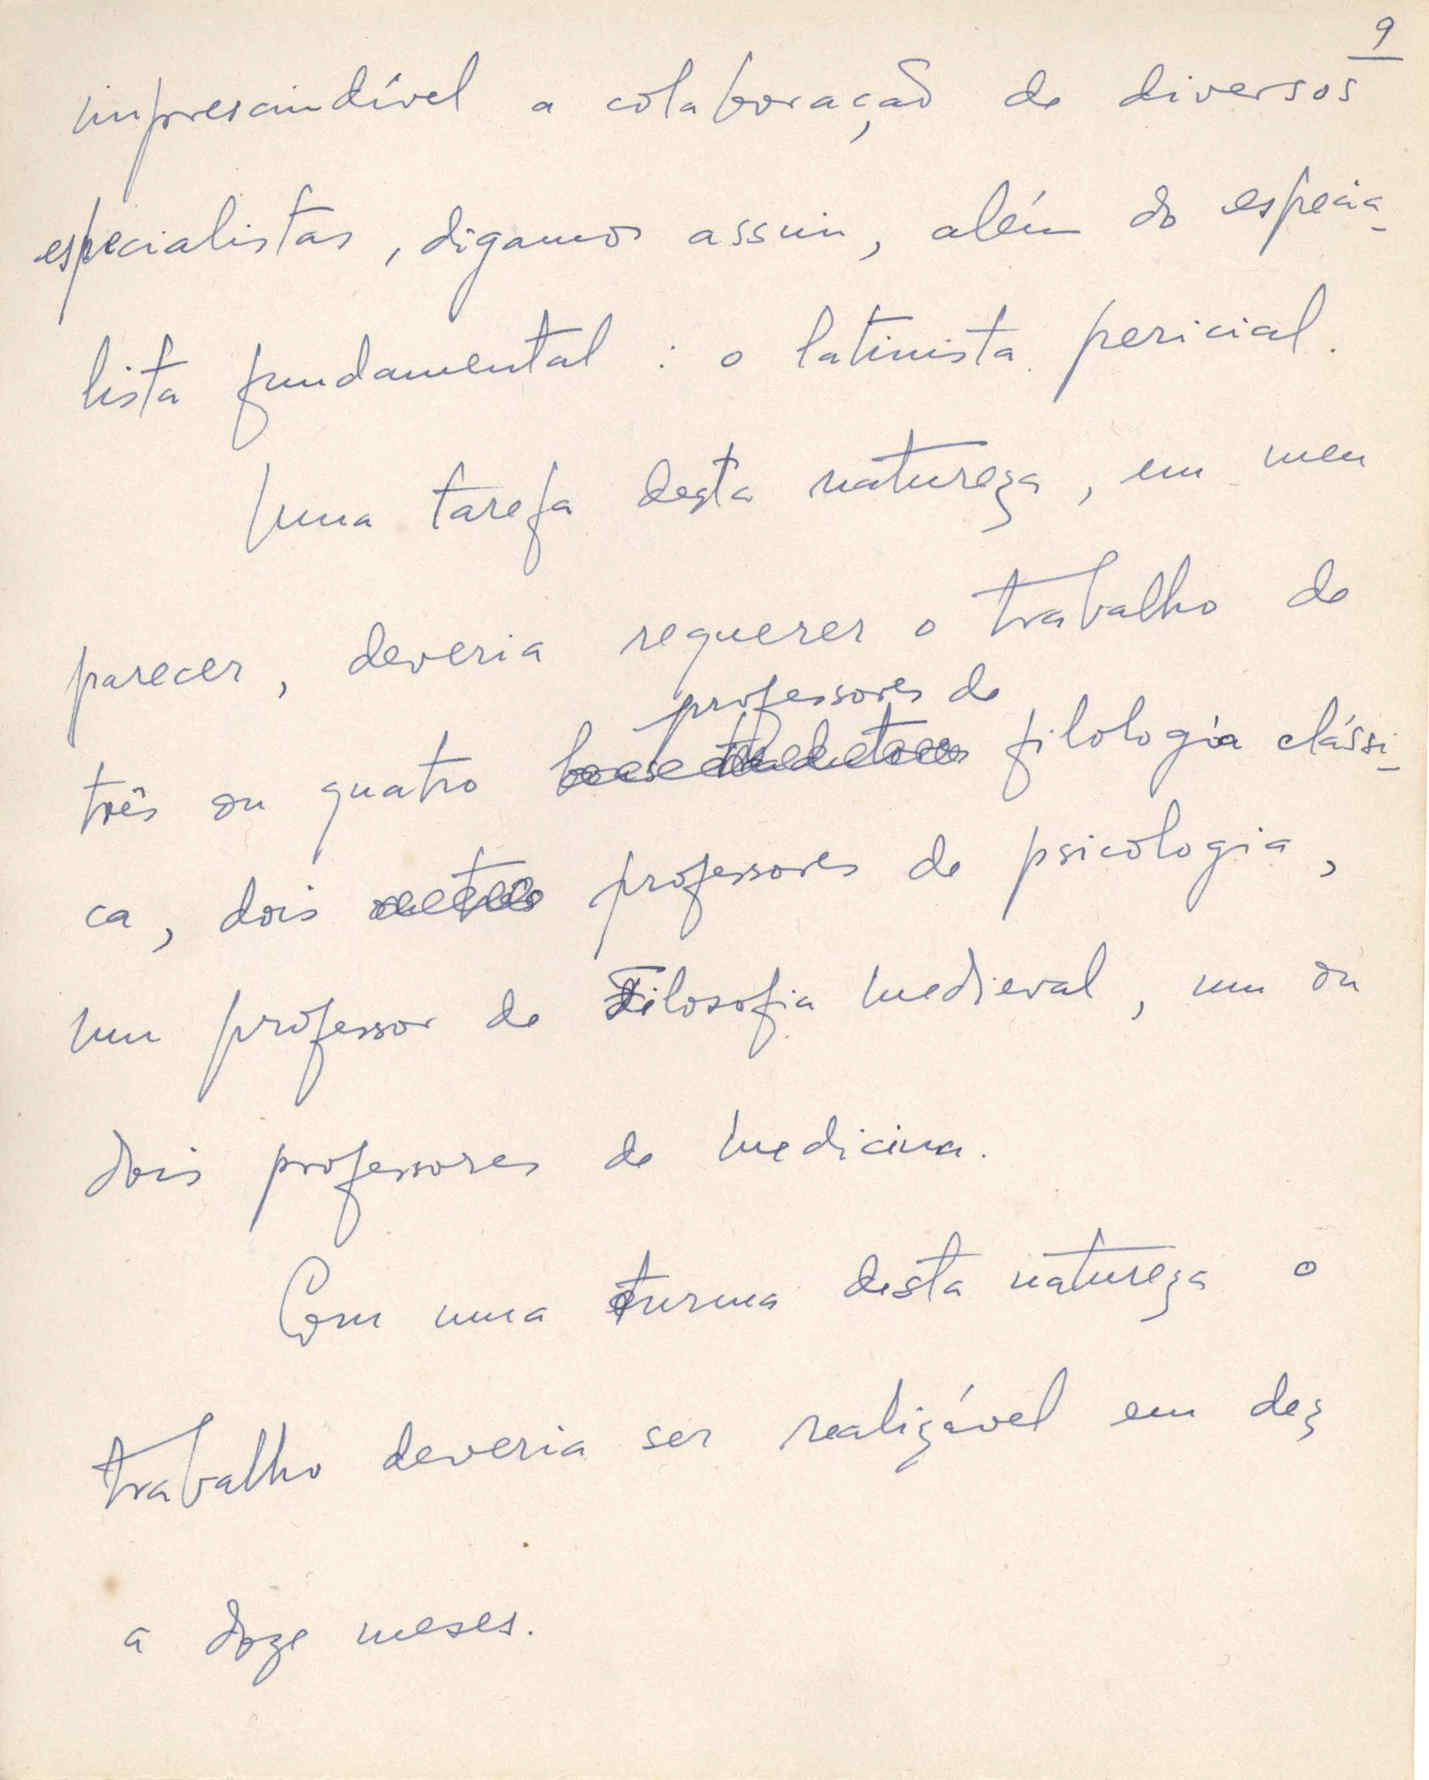 9
imprescindível a colaboração de diversos
especialistas, digamos assim, além do especia-
lista fundamental: o latinista pericial.
Uma tarefa desta natureza, em meu
parecer, deveria requerer o trabalho de
professores de
três ou quatro filologia clássi-
ca, dois professores de psicologia,
um professor de Filosofia medieval, um ou
dois professores de medicina.
Com uma turma desta natureza o
trabalho deveria ser realizável em dez
a doze meses.